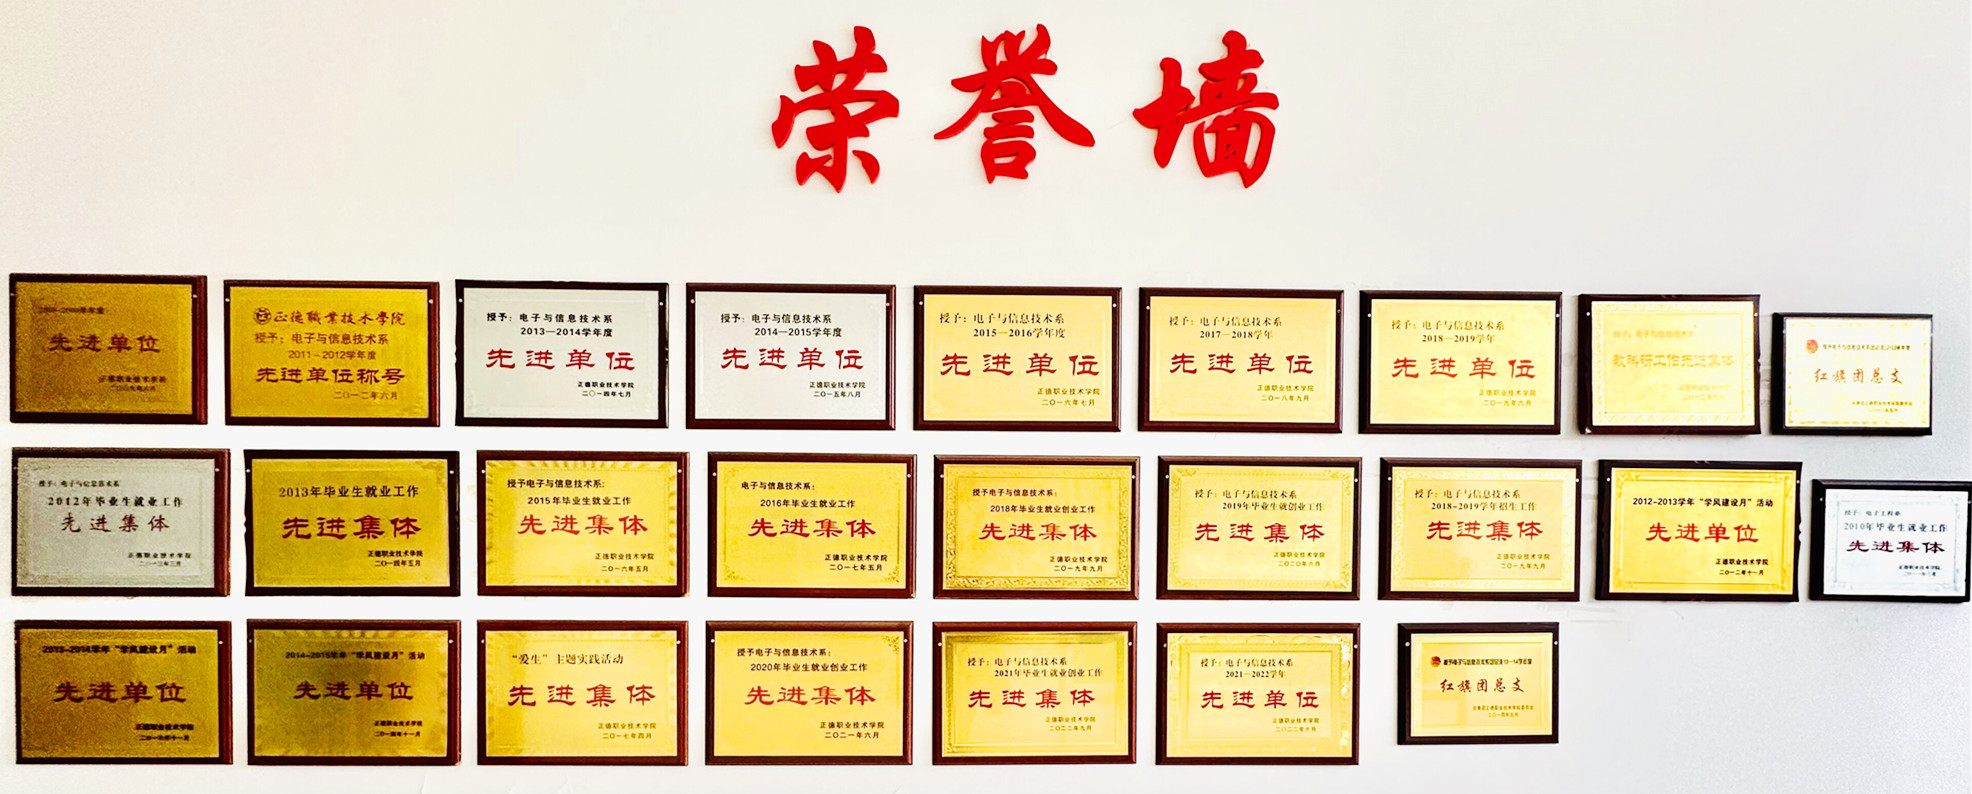 荣誉墙
先进单位
正德职业技术学院
二〇〇九年六月
正德職業技术學院
授予：电子与信息技术系
2011-2012学年度
先进单位称号
二〇一二年六月
授予：电子与信息技术系
2013—2014学年度
先进单位
正德职业技术学院
二〇一四年七月
授予：电子与信息技术系
2014—2015学年度
先进单位
正德职业技术学院
二〇一五年八月
授予：电子与信息技术系
2015—2016学年度
先进单位
正德职业技术学院
二〇一六年七月
授予：电子与信息技术系
2017—2018学年
先进单位
正德职业技术学院
二〇一八年九月
授予：电子与信息技术系
2018—2019学年
先进单位
正德职业技术学院
二〇一九年六月
授予：电子与信息技术系
教科研工作先进集体
红旗团总支
授予：电子与信息技术系
2012年毕业生就业工作
先进集体
正德职业技术学院
二〇一三年三月
2013年毕业生就业工作
先进集体
正德职业技术学院
二〇一四年五月
授予电子与信息技术系：
2015年毕业生就业工作
先进集体
正德职业技术学院
二〇一六年五月
电子与信息技术系：
2016年毕业生就业工作
先进集体
正德职业技术学院
二〇一七年五月
授予电子与信息技术系：
2018年毕业生就业创业工作
先进集体
正德职业技术学院
二〇一九年九月
授予：电子与信息技术系
2019年毕业生就创业工作
先进集体
正德职业技术学院
二〇二〇年六月
授予：电子与信息技术系
2018-2019学年招生工作
先进集体
正德职业技术学院
二〇一九年九月
2012-2013学年“学风建设月”活动
先进单位
正德职业技术学院
二〇一二年十一月
授予：电子工程系
2010年毕业生就业工作
先进集体
正德职业技术学院
2013-2014学年“学风建设月”活动
先进单位
正德职业技术学院
二〇一三年十一月
2014-2015学年“学风建设月”活动
先进单位
正德职业技术学院
二〇一四年十一月
“爱生”主题实践活动
先进集体
正德职业技术学院
二〇一七年四月
授予电子与信息技术系：
2020年毕业生就业创业工作
先进集体
正德职业技术学院
二〇二一年六月
授予：电子与信息技术系
2021年毕业生就业创业工作
先进集体
正德职业技术学院
二〇二二年九月
授予：电子与信息技术系
2021—2022学年
先进单位
正德职业技术学院
二〇二二年六月
红旗团总支
二〇一四年五月